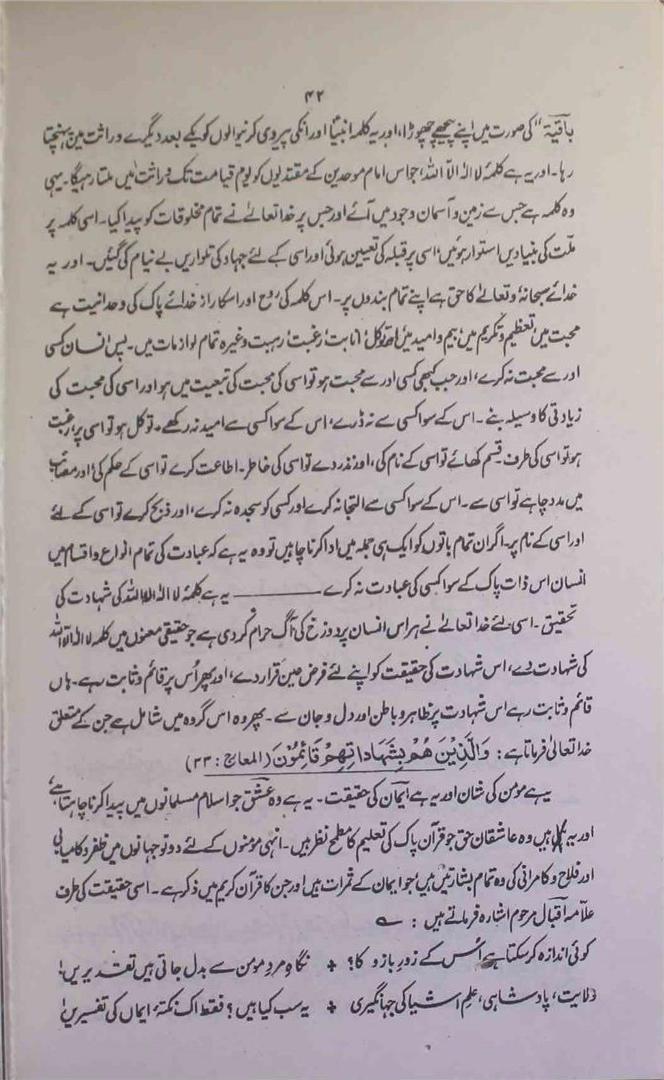 ۴۲
باقیۃ" کی صورت میں اپنے پیچھے چھوڑا، اور یہ کلمہ انبیاؑ اور انکی پیروی کرنیوالوں کو یکے بعد دیگرے وراثت میں پہنچتا
رہا۔ اور یہ ہے کلمۂ لا الٰہ الّا اللہ، جو اس امام موحدین کے مقتدیوں کو یوم قیامت تک وراثت میں ملتا رہیگا۔ یہی
وہ کلمہ ہے جس سے زمین و آسمان وجود میں آئے اور جس پر خدا تعالےٰ نے تمام مخلوقات کو پیدا کیا۔ اسی کلمہ پر
ملّت کی بنیادیں استوار ہوئیں، اسی پر قبلہ کی تعیین ہوئی اور اسی کے لئے جہاد کی تلواریں بے نیام کی گئیں۔ اور یہ
خدائے سبحانہٗ و تعالےٰ کا حق ہے اپنے تمام بندوں پر۔ اس کلمہ کی روح اور اسکا راز خدائے پاک کی وحدانیت ہے
محبت میں تعظیم و تکریم میں، بیم و امید میں اور توکل، انابت، رغبت، رہبت وغیرہ تمام لوازمات میں۔ پس انسان کسی
اور سے محبت نہ کرے، اور جب کبھی کسی اور سے محبت ہو تو اسی کی محبت کی تبعیت میں ہو اور اسی کی محبت کی
زیادتی کا وسیلہ بنے۔ اس کے سوا کسی سے نہ ڈرے، اس کے سوا کسی سے امید نہ رکھے۔ توکل ہو تو اسی پر، رغبت
ہو تو اسی کی طرف، قسم کھائے تو اسی کے نام کی، اور نذر دے تو اسی کی خاطر۔ اطاعت کرے تو اسی کے حکم کی، اور مصائب
میں مدد چاہے تو اسی سے۔ اس کے سوا کسی سے التجا نہ کرے اور کسی کو سجدہ نہ کرے، اور ذبح کرے تو اسی کے لئے
اور اسی کے نام پر۔ اگر ان تمام باتوں کو ایک ہی جملہ میں ادا کرنا چاہیں تو وہ یہ ہے کہ عبادت کی تمام انواع و اقسام میں
انسان اس ذات پاک کے سوا کسی کی عبادت نہ کرے ـــــــــ یہ ہے کلمۂ لا الٰہ الا اللہ کی شہادت کی
تحقیق۔ اسی لئے خدا تعالےٰ نے ہر اس انسان پر دوزخ کی آگ حرام کر دی ہے جو حقیقی معنوں میں کلمہ لا الٰہ الّا اللہ
کی شہادت دے، اس شہادت کی حقیقت کو اپنے لئے فرض عین قرار دے، اور پھر اُس پر قائم و ثابت رہے۔ ہاں
قائم و ثابت رہے اس شہادت پر ظاہر و باطن اور دل و جان سے۔ پھر وہ اس گروہ میں شامل ہے جن کے متعلق
خدا تعالیٰ فرماتا ہے: وَالَّذِیْنَ هُمْ بِشَهَادَاتِهِمْ قَائِمُوْنَ (المعارج: ۳۳)
یہ ہے مؤمن کی شان اور یہ ہے ایمان کی حقیقت۔ یہ ہے وہ عشق جو اسلام مسلمانوں میں پیدا کرنا چاہتا ہے،
اور یہ ہیں وہ عاشقان حق جو قرآن پاک کی تعلیم کا مطمح نظر ہیں۔ انہی مؤمنوں کے لئے دونو جہانوں میں ظفر و کامیابی
اور فلاح و کامرانی کی وہ تمام بشارتیں ہیں جو ایمان کے ثمرات ہیں اور جن کا قرآن کریم میں ذکر ہے۔ اسی حقیقت کی طرف
علّامہ اقبال مرحوم اشارہ فرماتے ہیں: ؎
کوئی اندازہ کر سکتا ہے اُس کے زورِ بازو کا؟ + نگاہِ مردِ مومن سے بدل جاتی ہیں تقدیریں!
ولایت، پادشاہی، علمِ اشیا کی جہانگیری + یہ سب کیا ہیں؟ فقط اک نکتۂ ایماں کی تفسیریں!